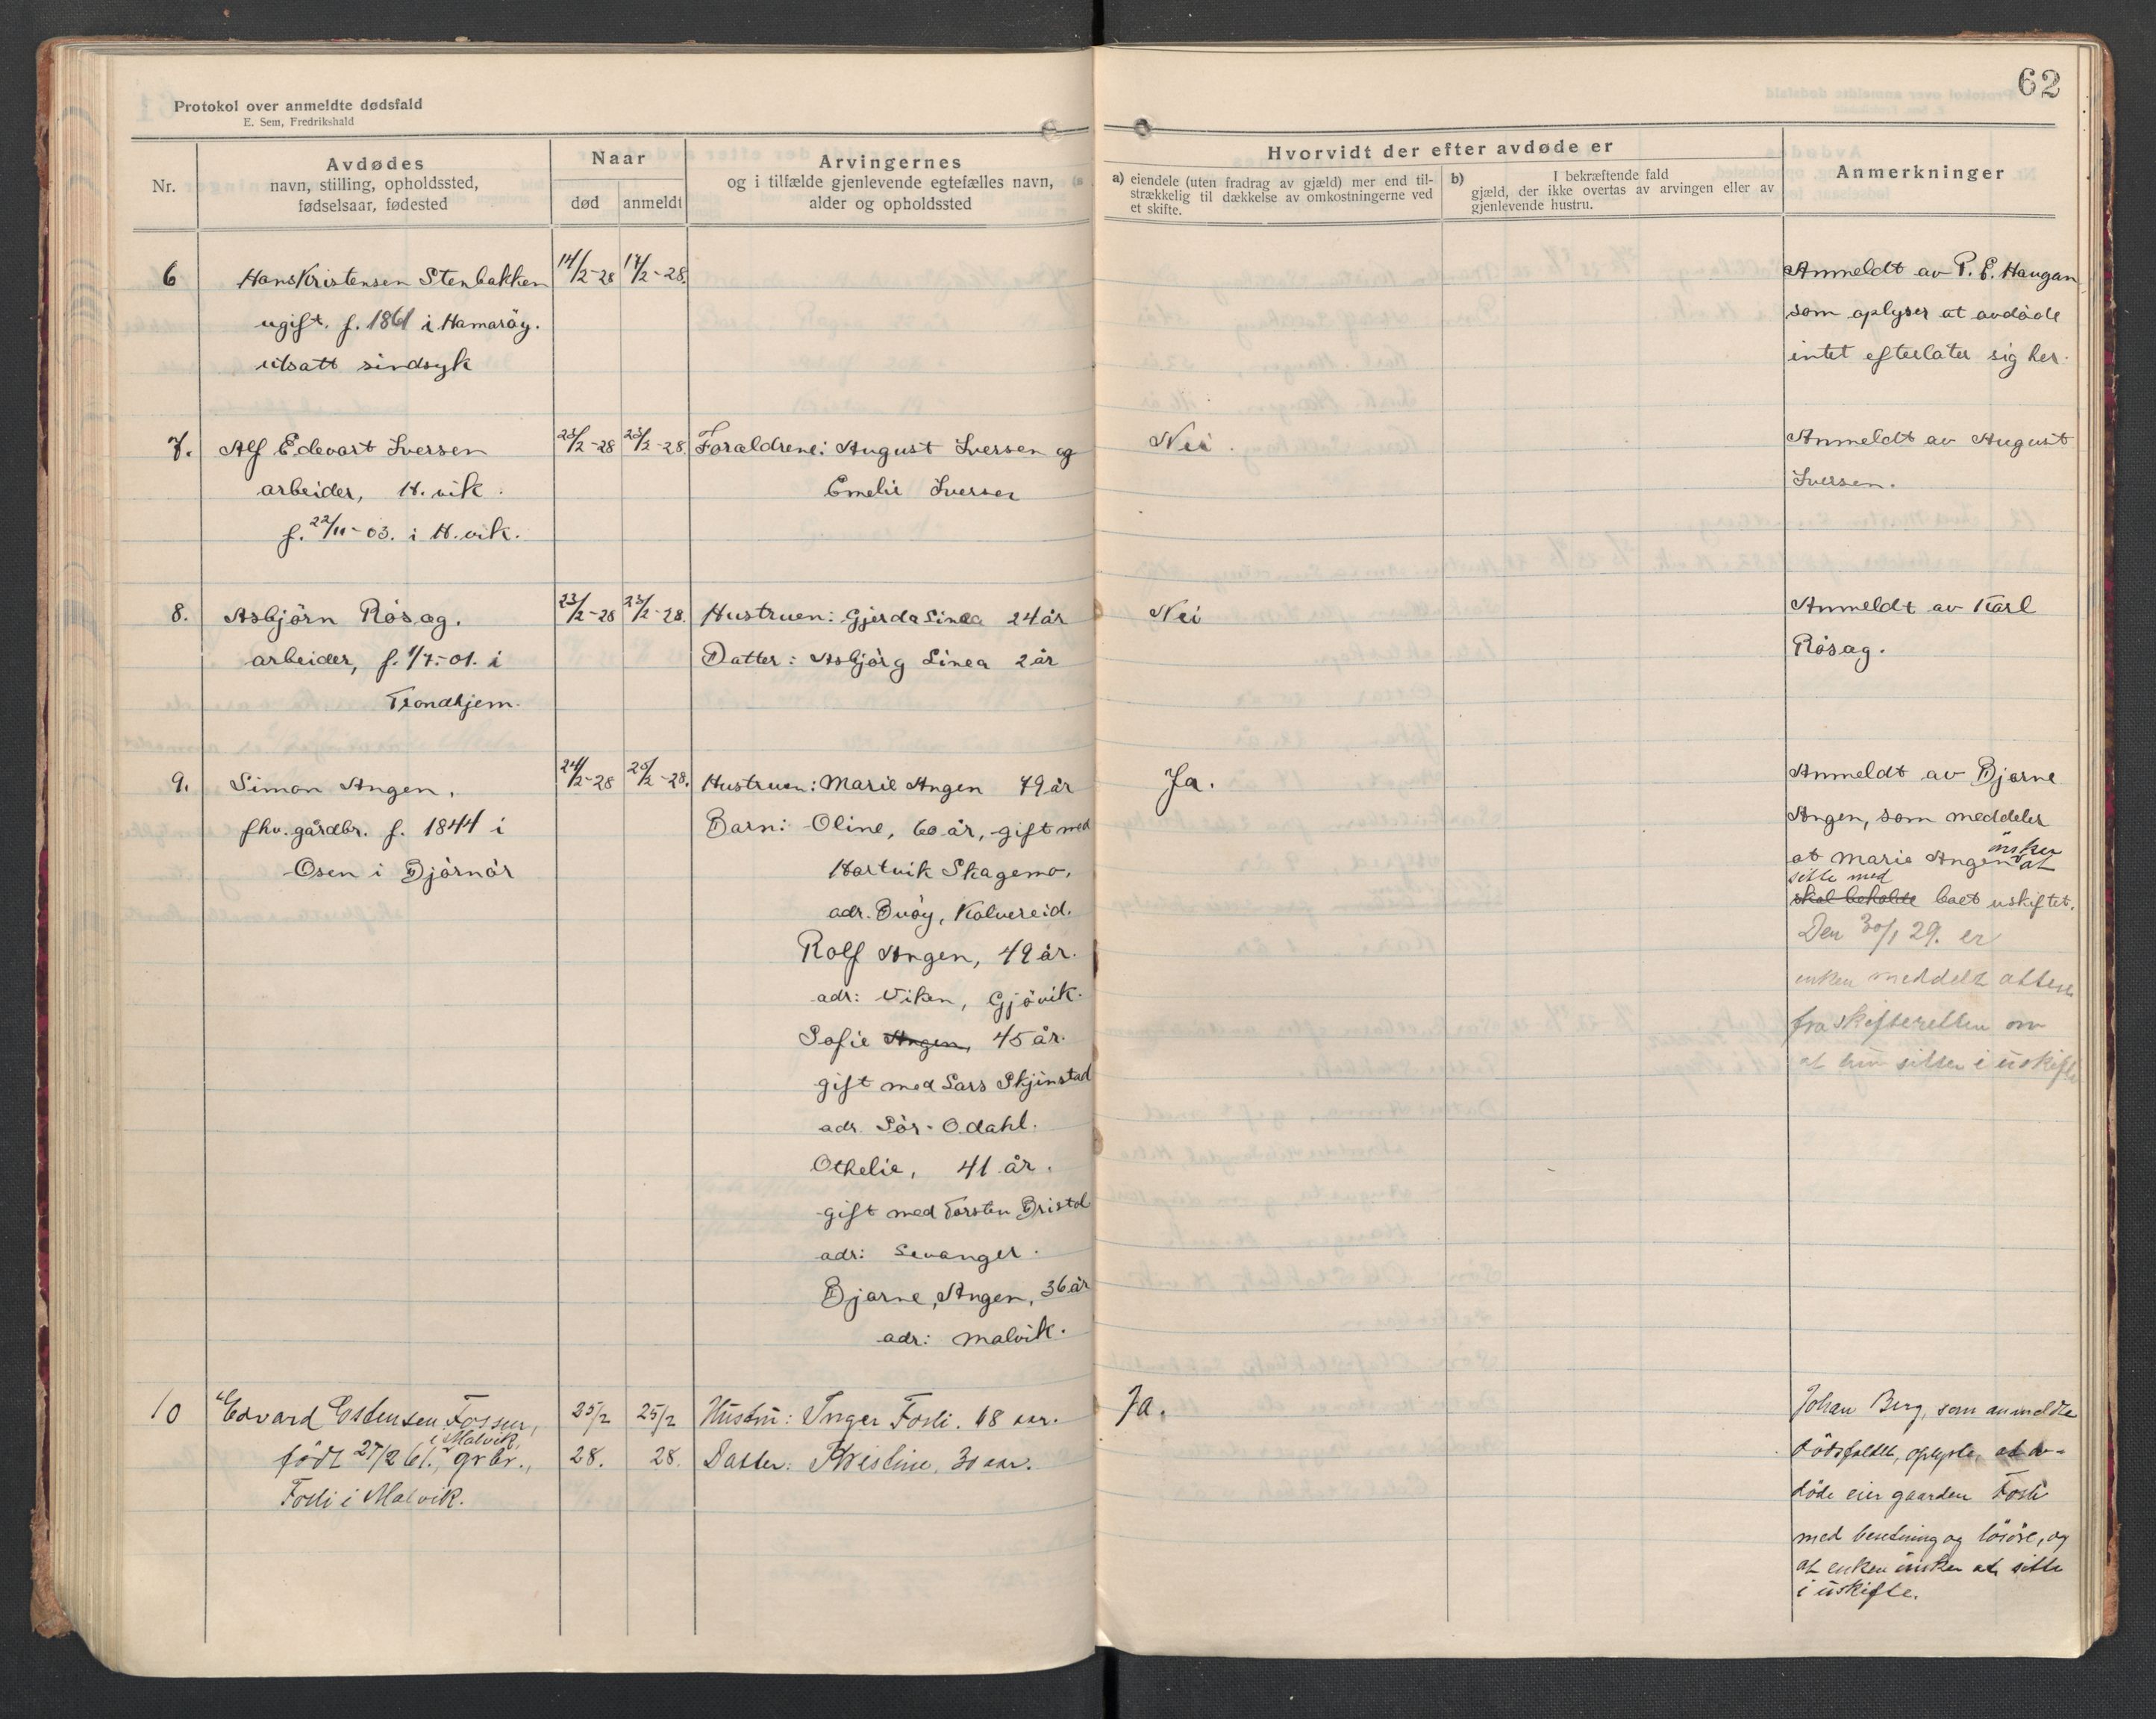 62
Protokol over anmeldte dødsfald
E. Sem, Fredrikshald
Nr.
Avdødes
navn, stilling, opholdssted,
fødselsaar, fødested
Naar
død
anmeldt
Arvingernes
og i tilfælde gjenlevende egtefælles navn,
alder og opholdssted
Hvorvidt der efter avdøde er
a) eiendele (uten fradrag av gjæld) mer end til-
strækkelig til dækkelse av omkostningerne ved
et skifte.
b) I bekræftende fald
gjæld, der ikke overtas av arvingen eller av
gjenlevende hustru.
Anmerkninger
6 Hans Kristensen Stenbakken 14/2-28 17/2-28. Anmeldt av P. E. Haugan
ugift. f. 1861 i Hamarøy. som oplyser at avdøde
utsatt sindsyk intet efterlater sig her.
7. Alf Edevart Iversen 23/2-28 23/2-28. Foraldrene: August Iversen og Nei. Anmeldt av August
arbeider, H.vik. Emelie Iversen Iversen.
f. 22/11-03. i H.vik.
8. Asbjörn Rösag. 23/2-28 23/2-28. Hustruen: Gjerda Linea 24 år Nei Anmeldt av Karl
arbeider, f. 1/7-01. i Datter: Asbjörg Linea 2 år Rösag.
Trondhjem.
9. Simon Angen. 24/2-28 25/2-28. Hustruen: Marie Angen 79 år Ja. Anmeldt av Bjarne
fhv. gårdbr. f. 1844 i Barn: Oline, 60 år, gift med Angen, som meddeler
Osen i Björnör Hartvik Skagemo, at Marie Angen ønsker at
adr. Buöy, Kolvereid. sitte med skal beholde boet uskiftet.
Rolf Angen, 49 år. Den 30/1 29. er
adr: Viken, Gjövik. enken meddelt attest
Sofie Angen, 45 år. fra skifteretten om
gift med Lars Skjinstad at hun sitter i uskifte
adr. Sör-Odahl.
Othelie, 41 år.
gift med Torsten Bristol
adr: Levanger.
Bjarne, Angen, 36 år
adr: Malvik.
10 Edvard Estensen Fossen, 25/2 25/2 Hustru: Inger Fosli. 68 aar. Ja. Johan Berg, som anmeldte
i Malvik,
født 27/2 61., grbr., 28. 28. Datter: Kristine, 30 aar. dödsfaldet, oplyste, at av-
Fosli i Malvik. döde eier gaarden Fosli
med besetning og lösöre, og
at enken önsker at sitte
i uskifte.